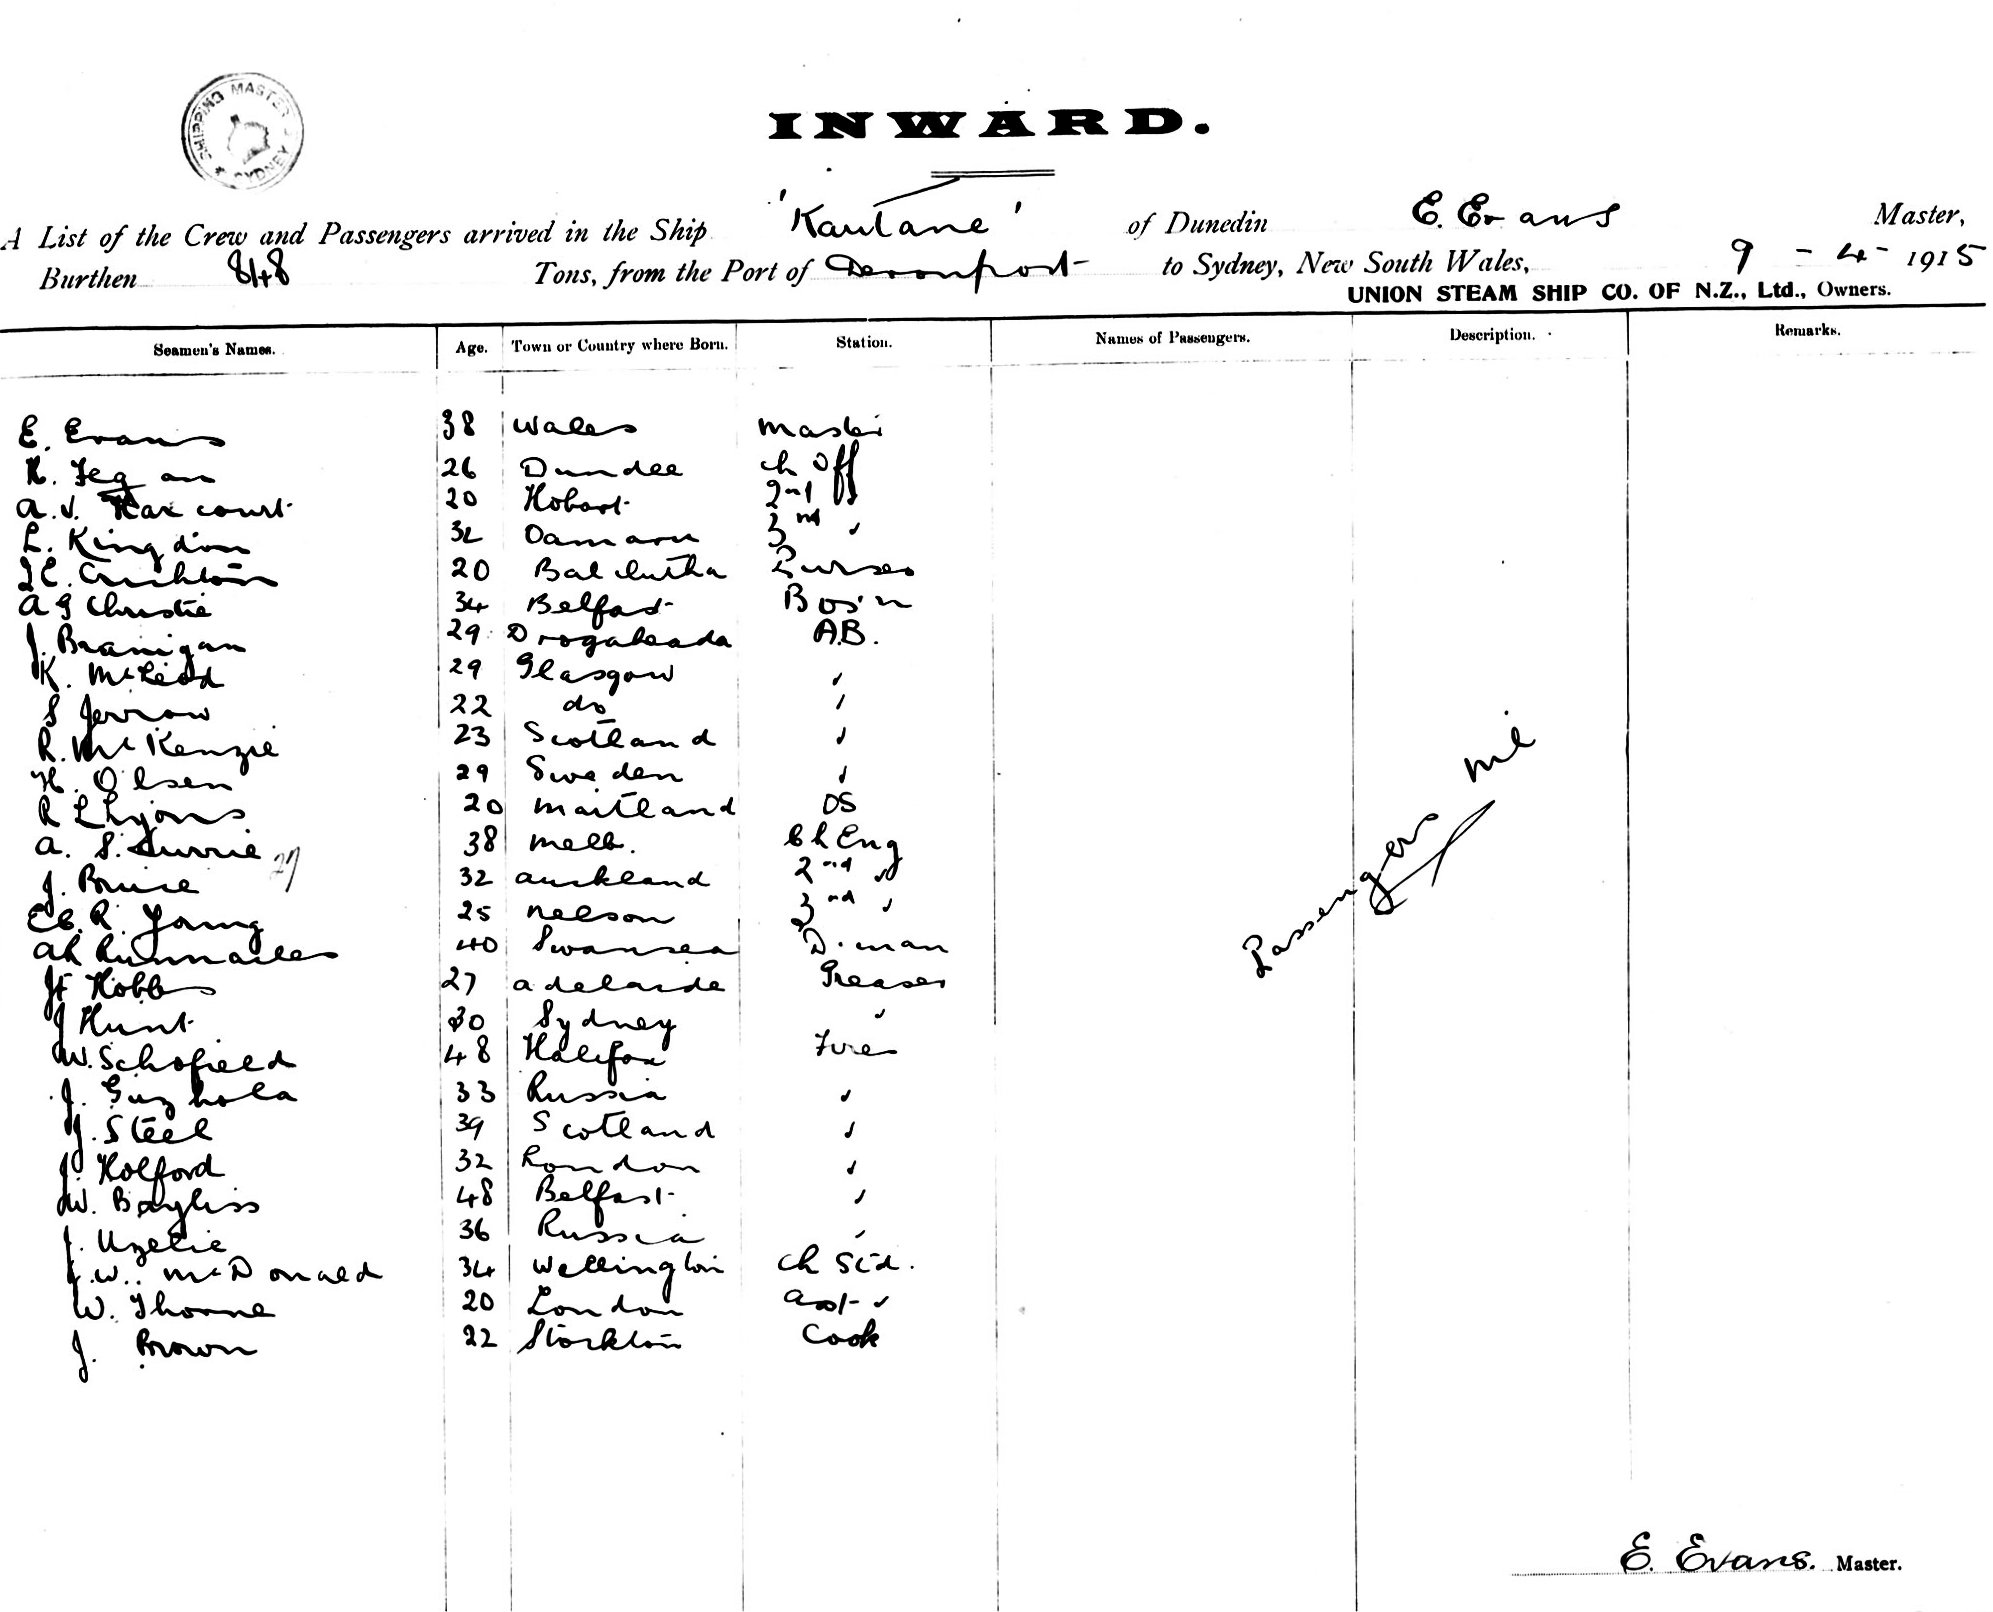 SHIPPING MASTER
SYDNEY
INWARD.
A List of the Crew and Passengers arrived in the Ship 'Kautane' of Dunedin E. Evans Master,
Burthen 848 Tons, from the Port of Devonport to Sydney, New South Wales, 9 - 4 - 1915
UNION STEAM SHIP CO. OF N.Z., Ltd., Owners.
Seamen's Names. Age. Town or Country where Born. Station. Names of Passengers. Description. Remarks.
E. Evans 38 Wales Master
26 Dundee Ch Off
A. V. Harcourt 20 Hobart 2nd "
L. Kingdon 32 Oamaru 3rd "
Crichton 20 Balclutha Purser
A G Christie 34 Belfast Bos'n
J. Branigan 29 Drogaheada A.B.
K. McLeod 29 Glasgow "
S Jerrow 22 do "
R. McKenzie 23 Scotland "
H. Olsen 29 Sweden "
R L Lyons 20 Maitland OS
A. S. Currie 38 Melb. Ch Eng
27
J. Bruce 32 Auckland 2nd "
Young 25 Nelson 3rd "
40 Swansea D. man
Hobbs 27 Adelaide Greaser
J Hunt 30 Sydney "
W. Schofield 48 Halifax Fires
J. Guzhola 33 Russia "
J. Steel 39 Scotland "
J. Holford 32 London "
W. Bayliss 48 Belfast "
J. Uzelie 36 Russia "
W. McDonald 34 Wellington Ch Std.
W. Thorne 20 London Asst "
J. Brown 22 Stockton Cook
Passengers nil
E. Evans. Master.